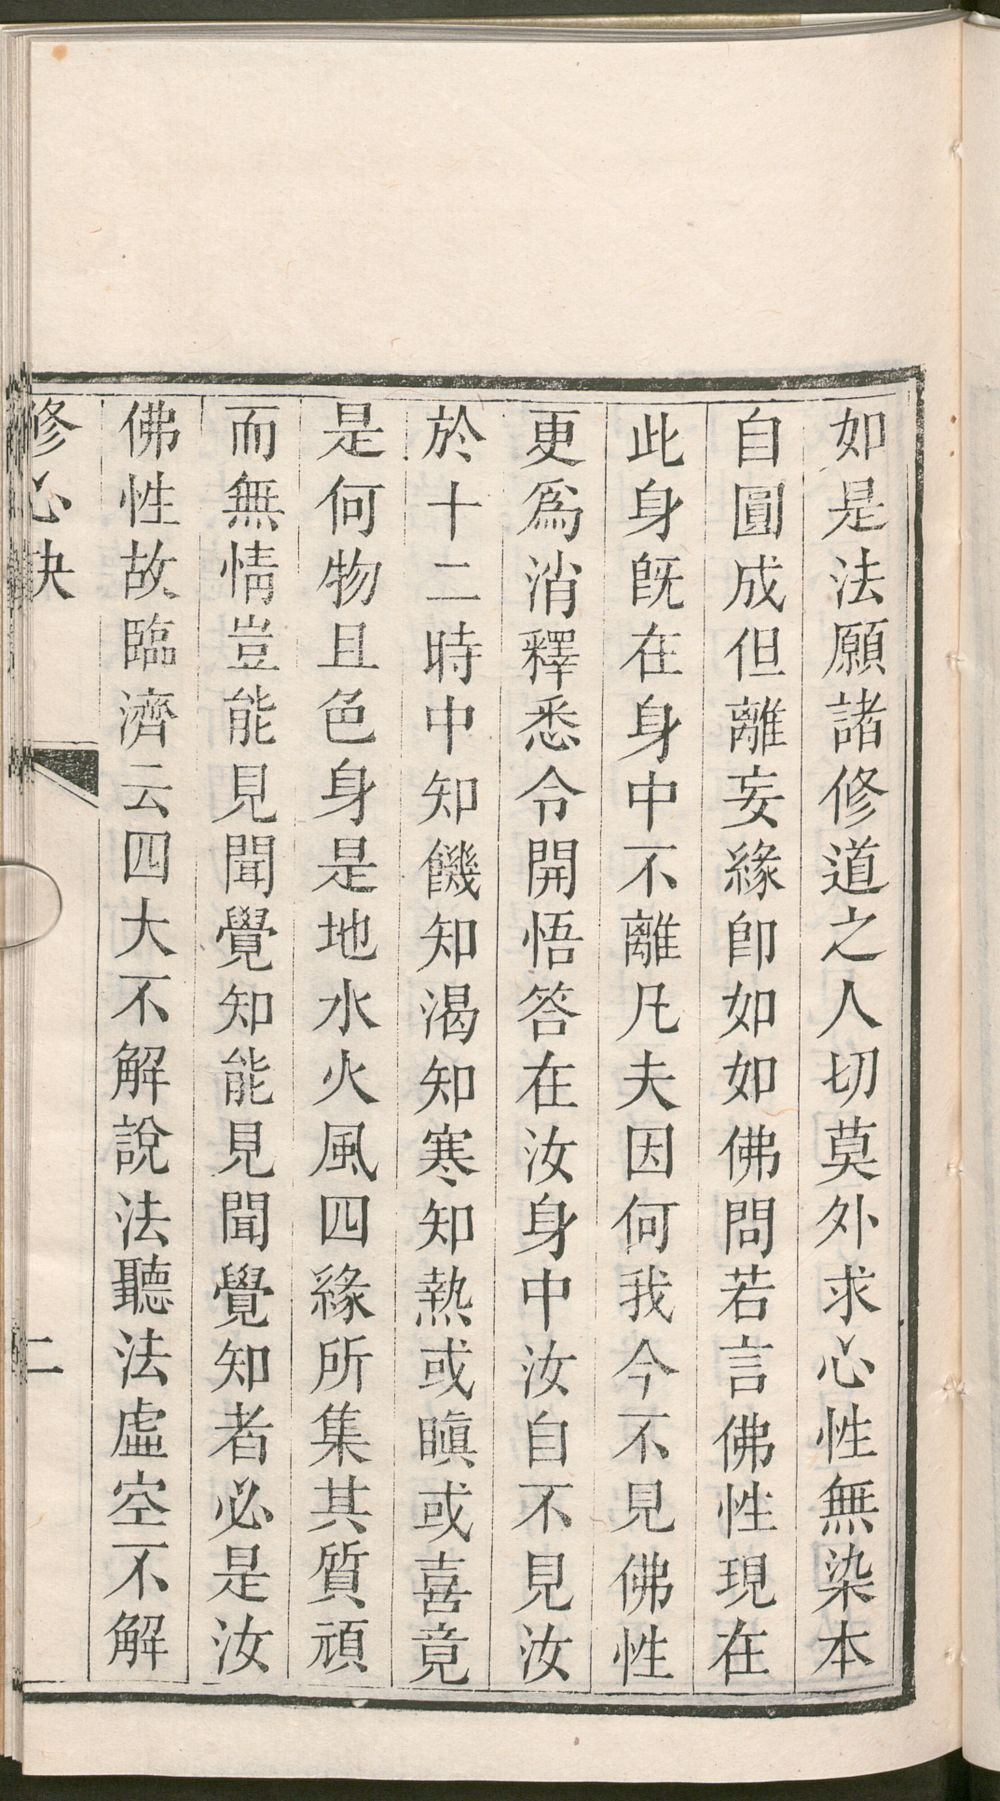 如是法願諸修道之人切莫外求心性無染本
自圓成但離妄緣卽如如佛問若言佛性現在
此身旣在身中不離凡夫因何我今不見佛性
更爲消釋悉令開悟答在汝身中汝自不見汝
於十二時中知饑知渴知寒知熱或瞋或喜竟
是何物且色身是地水火風四緣所集其質頑
而無情豈能見聞覺知能見聞覺知者必是汝
佛性故臨濟云四大不解說法聽法虛空不解
修心決
二